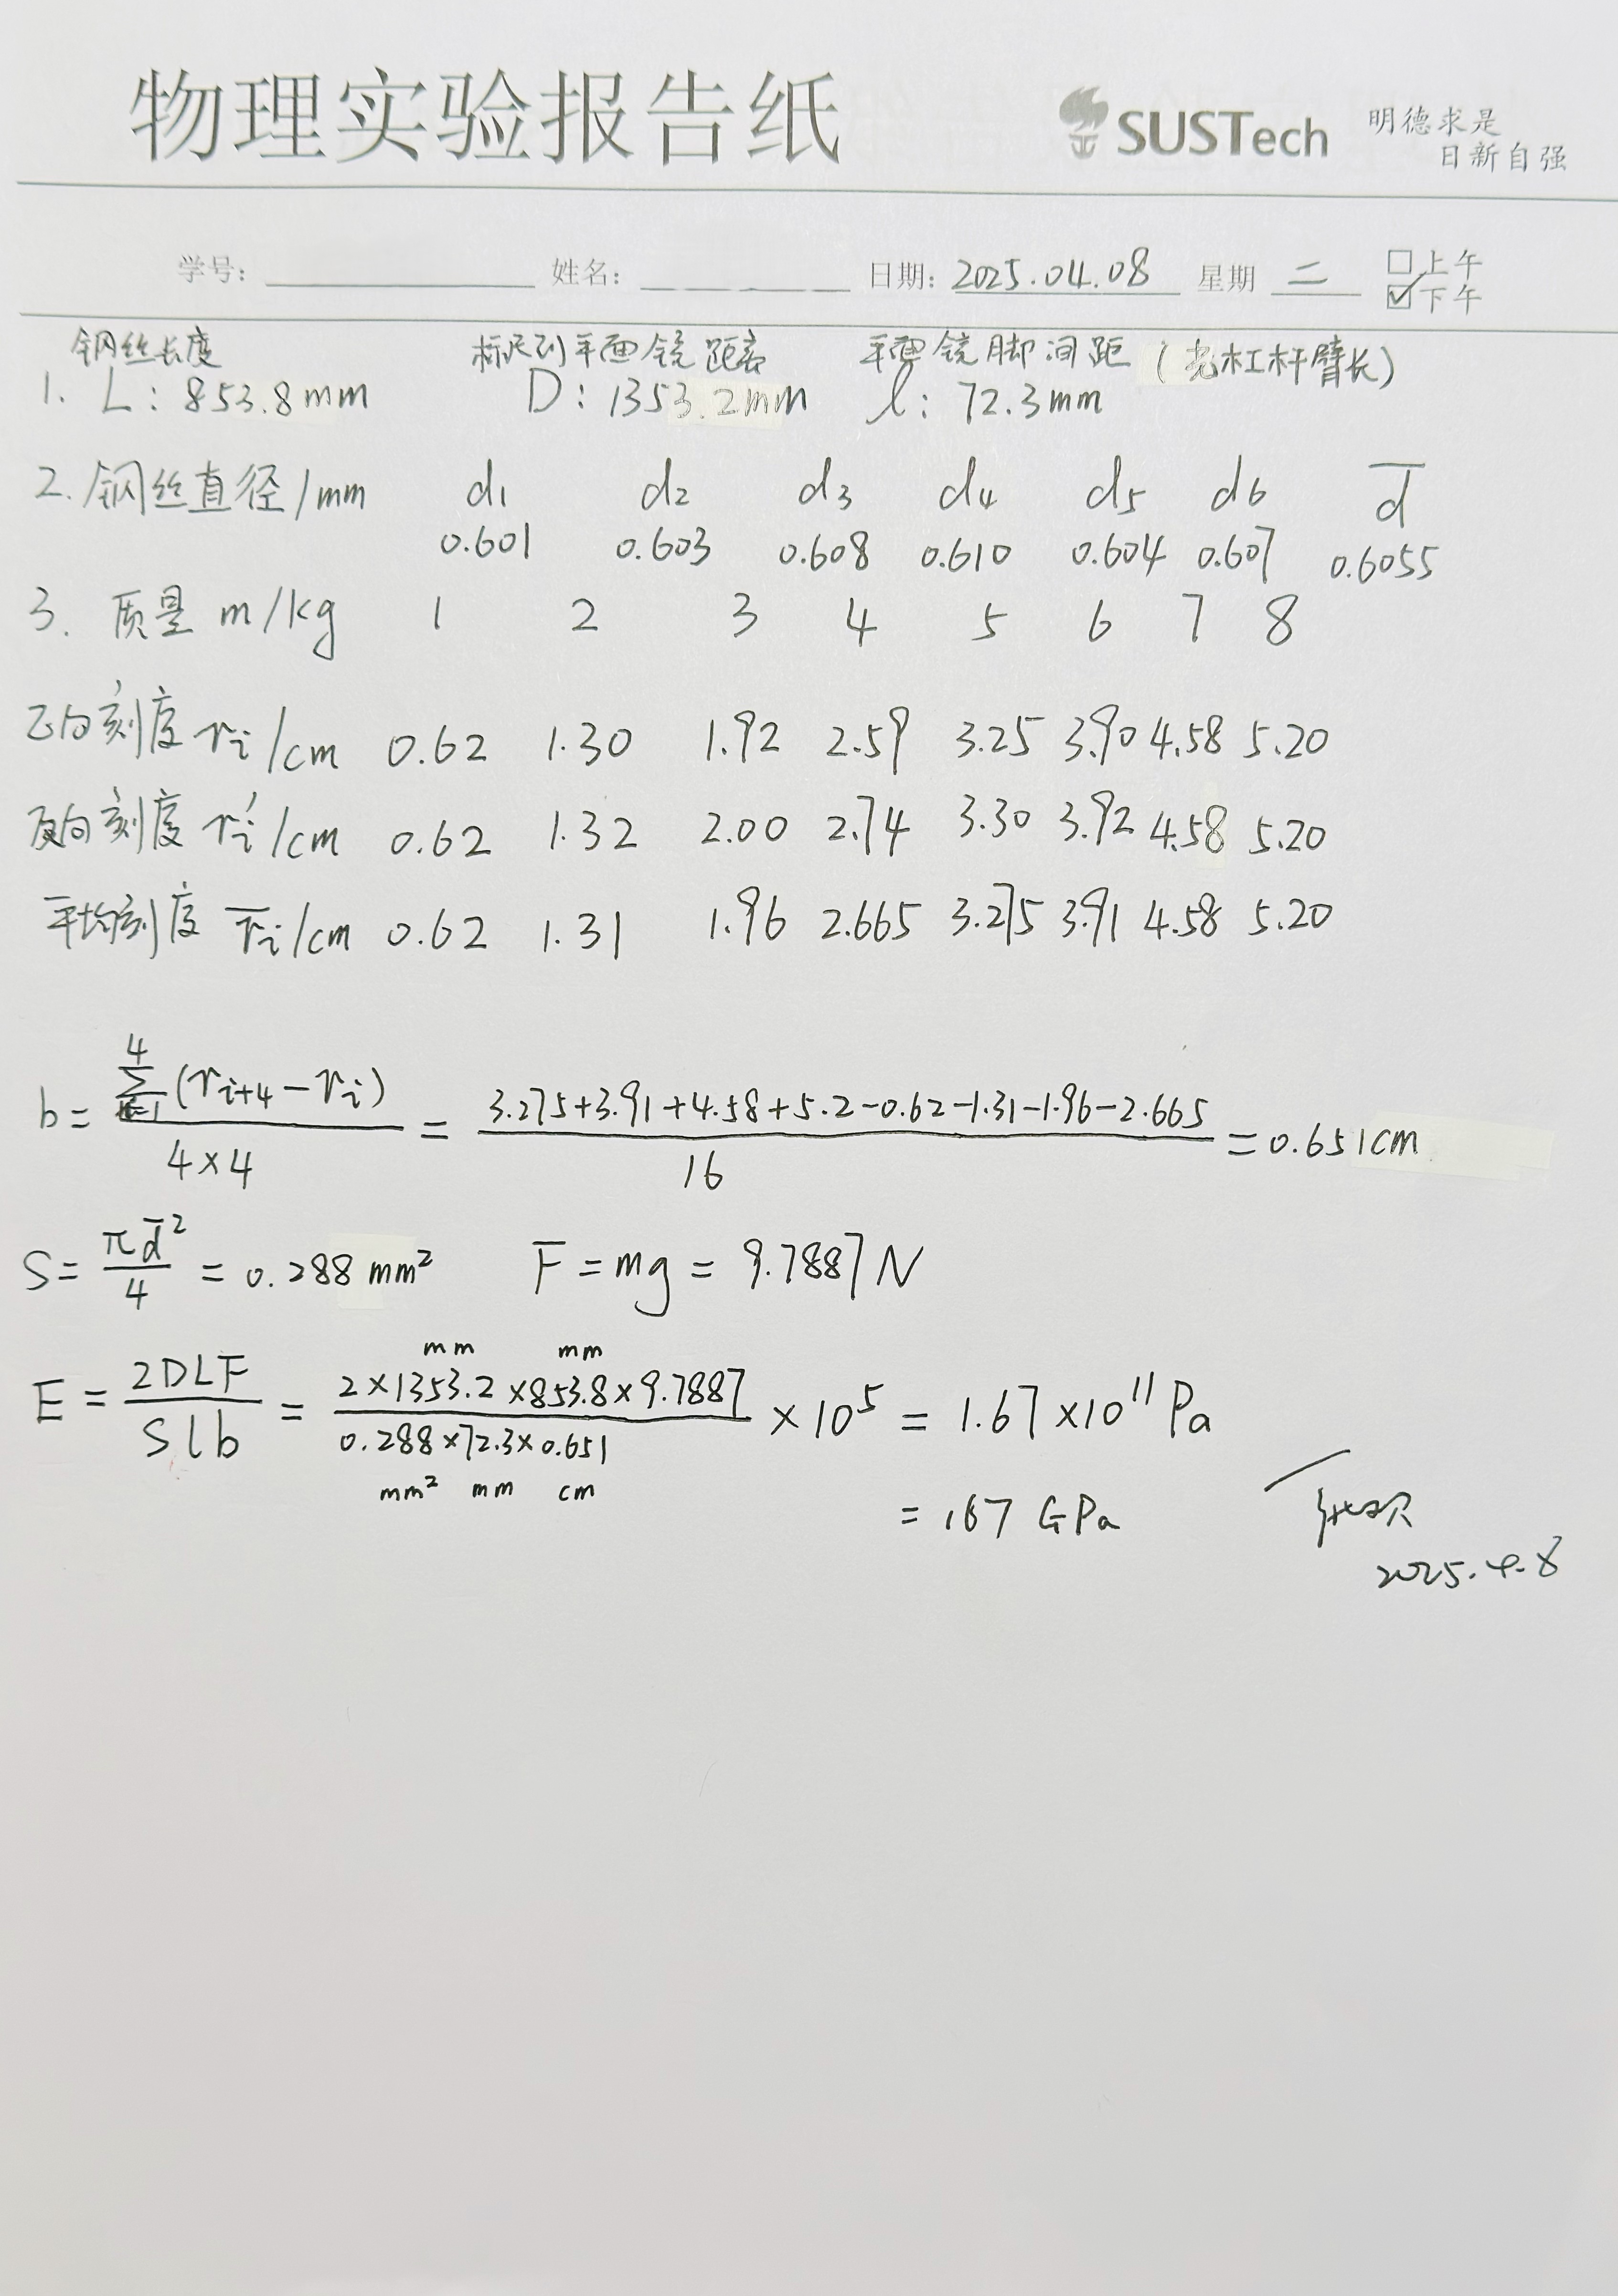 物理实验报告纸 SUSTech 明德求是
日新自强
学号: 姓名: 日期: 2025.04.08 星期 二 □上午
☑下午
钢丝长度 标尺到平面镜距离 平面镜脚间距 (光杠杆臂长)
1. L: 853.8mm D: 1353.2mm l: 72.3mm
2. 钢丝直径/mm d₁ d₂ d₃ d₄ d₅ d₆ d̅
0.601 0.603 0.608 0.610 0.604 0.607 0.6055
3. 质量 m/kg 1 2 3 4 5 6 7 8
正向刻度 rᵢ/cm 0.62 1.30 1.92 2.59 3.25 3.90 4.58 5.20
反向刻度 rᵢ'/cm 0.62 1.32 2.00 2.74 3.30 3.92 4.58 5.20
平均刻度 r̅ᵢ/cm 0.62 1.31 1.96 2.665 3.275 3.91 4.58 5.20
b = \frac{\sum_{i=1}^{4}(r_{i+4}-r_i)}{4×4} = \frac{3.275+3.91+4.58+5.2-0.62-1.31-1.96-2.665}{16} = 0.651cm
S = \frac{π\bar{d}^2}{4} = 0.288mm² F = mg = 9.7887N
mm mm
E = \frac{2DLF}{Slb} = \frac{2×1353.2×853.8×9.7887}{0.288×72.3×0.651} ×10⁵ = 1.67×10¹¹Pa
mm² mm cm
= 167 GPa
2025.4.8